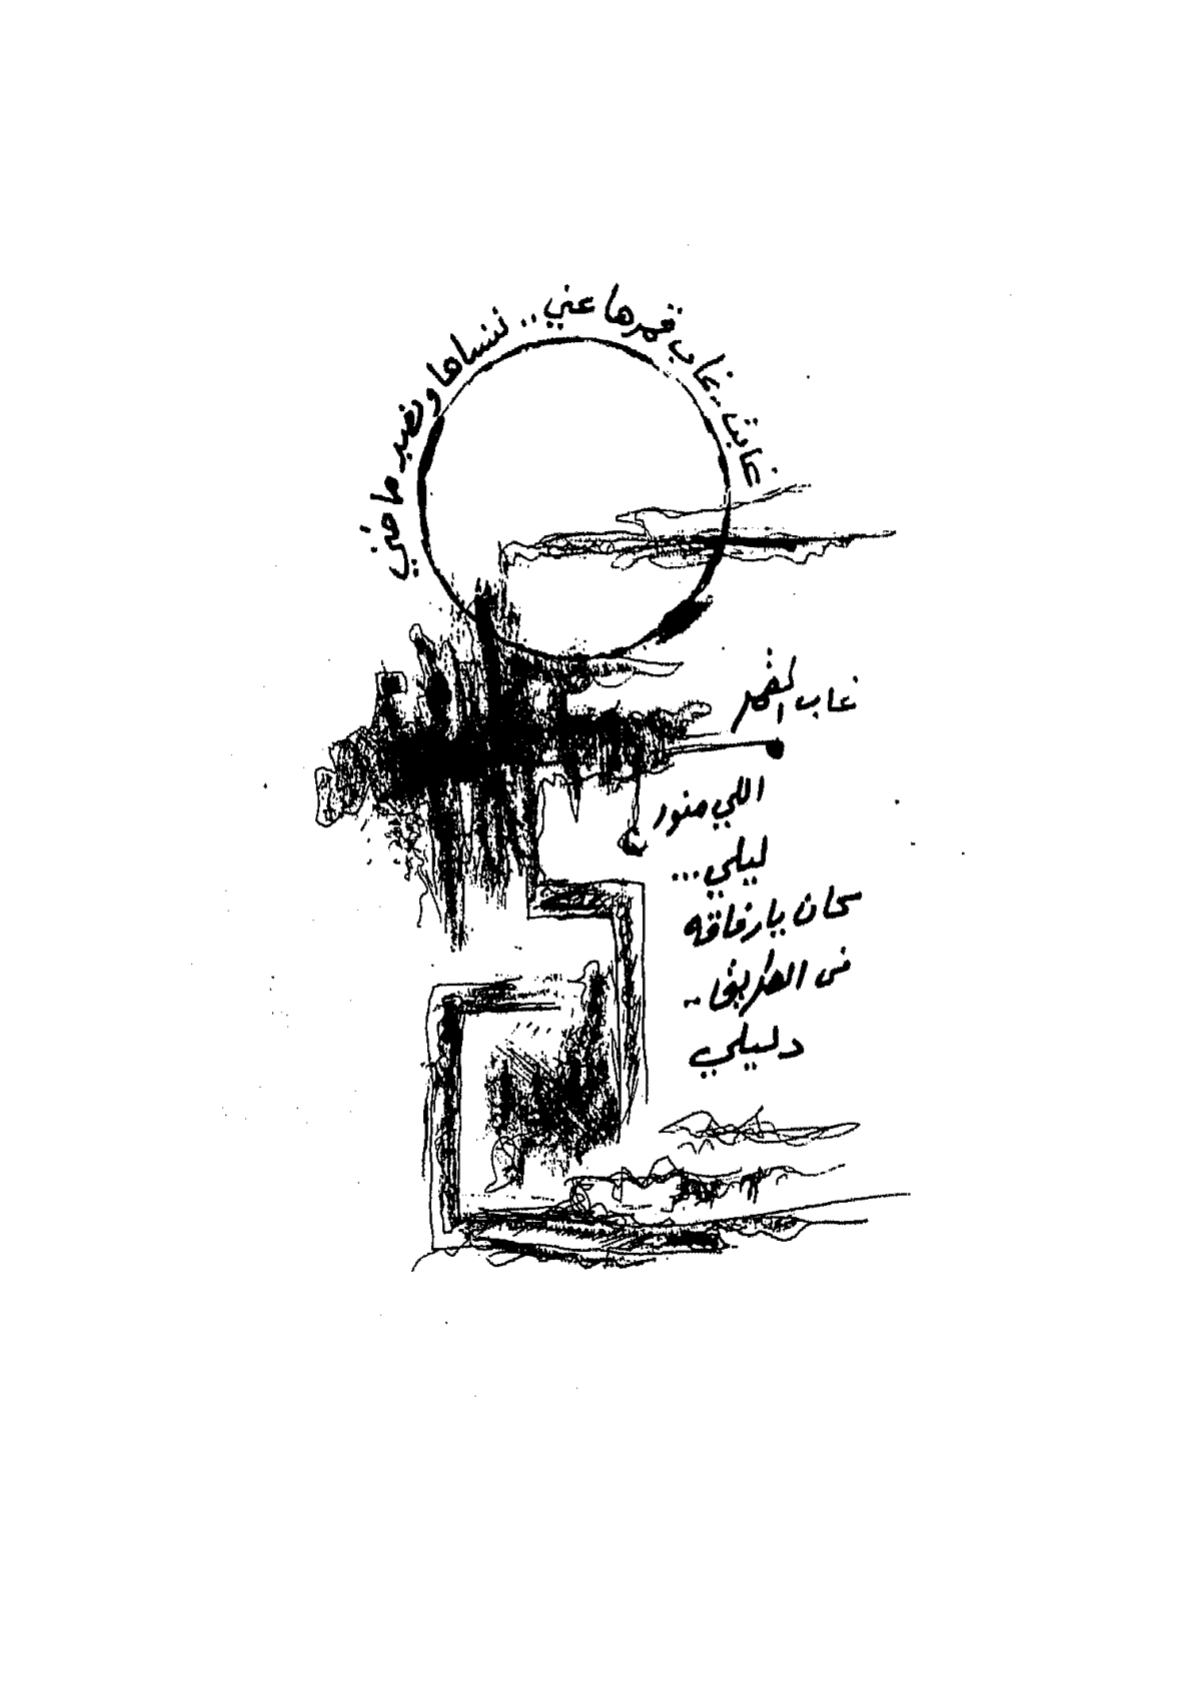 غابت .. غاب قمرها عني .. ننساها ونصبر ما مني
غاب القمر
اللي منور
ليلي ...
كان يا رفاقه
في الطريق ..
دليلي